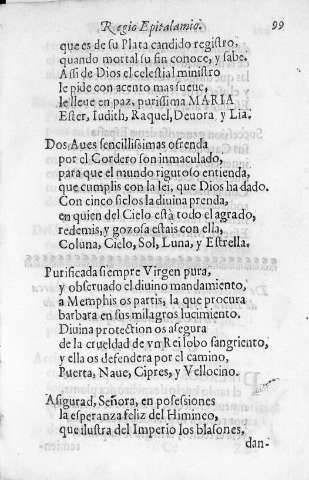 Regio Epitalamio. 99
que es de su Plata candido registro,
quando mortal su fin conoce, y sabe.
Assi de Dios el celestial ministro
le pide con acento mas sueue,
le lleue en paz, purissima MARIA
Ester, Iudith, Raquel, Deuora, y Lia.
Dos Aues sencillissimas ofrenda
por el Cordero son inmaculado,
para que el mundo rigutoso entienda,
que cumplis con la lei, que Dios ha dado.
Con cinco siclos la diuina prenda,
en quien del Cielo està todo el agrado,
redemis, y gozosa estais con ella,
Coluna, Cielo, Sol, Luna, y Estrella.
Purificada siempre Virgen pura,
y obseruado el diuino mandamiento,
a Memphis os partis, la que procura
barbara en sus milagros lucimiento.
Diuina protection os asegura
de la crueldad de vn Rei lobo sangriento,
y ella os defendera por el camino,
Puerta, Naue, Cipres, y Vellocino.
Asigurad, Señora, en posesiones
la esperanza feliz del Himineo,
que ilustra del Imperio los blasones,
dan-